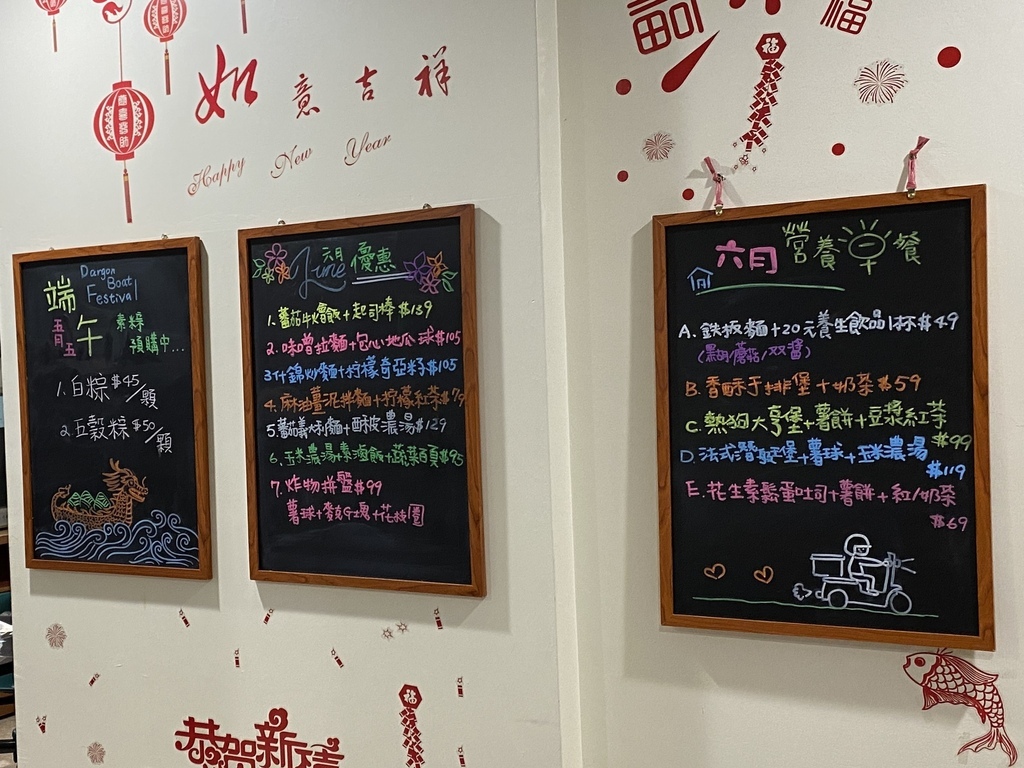 如意吉祥
Happy New Year
福
福
端午
Dargon
Boat
Festival
五月五
素粽
預購中...
1. 白粽 $45/顆
2. 五穀粽 $50/顆
June 六月 優惠
1. 蕃茄牛燴飯+起司棒 $139
2. 味噌拉麵+包心地瓜球 $105
3. 什錦炒麵+柠檬奇亞籽 $105
4. 麻油薑泥拌麵+柠檬紅茶 $79
5. 蕃茄義大利麵+酥皮濃湯 $129
6. 玉米濃湯+素滷飯+蔬菜百頁 $95
7. 炸物拼盤 $99
薯球+麥克G塊+花枝圈
六月 營養早餐
A. 鉄板麵+20元養生飲品1杯 $49
(黑胡/蘑菇/双醬)
B. 香酥手排堡+奶茶 $59
C. 熱狗大亨堡+薯餅+豆漿紅茶
$99
D. 法式潛艇堡+薯球+玉米濃湯
$119
E. 花生素鬆蛋吐司+薯餅+紅/奶茶
$69
恭賀新禧
福